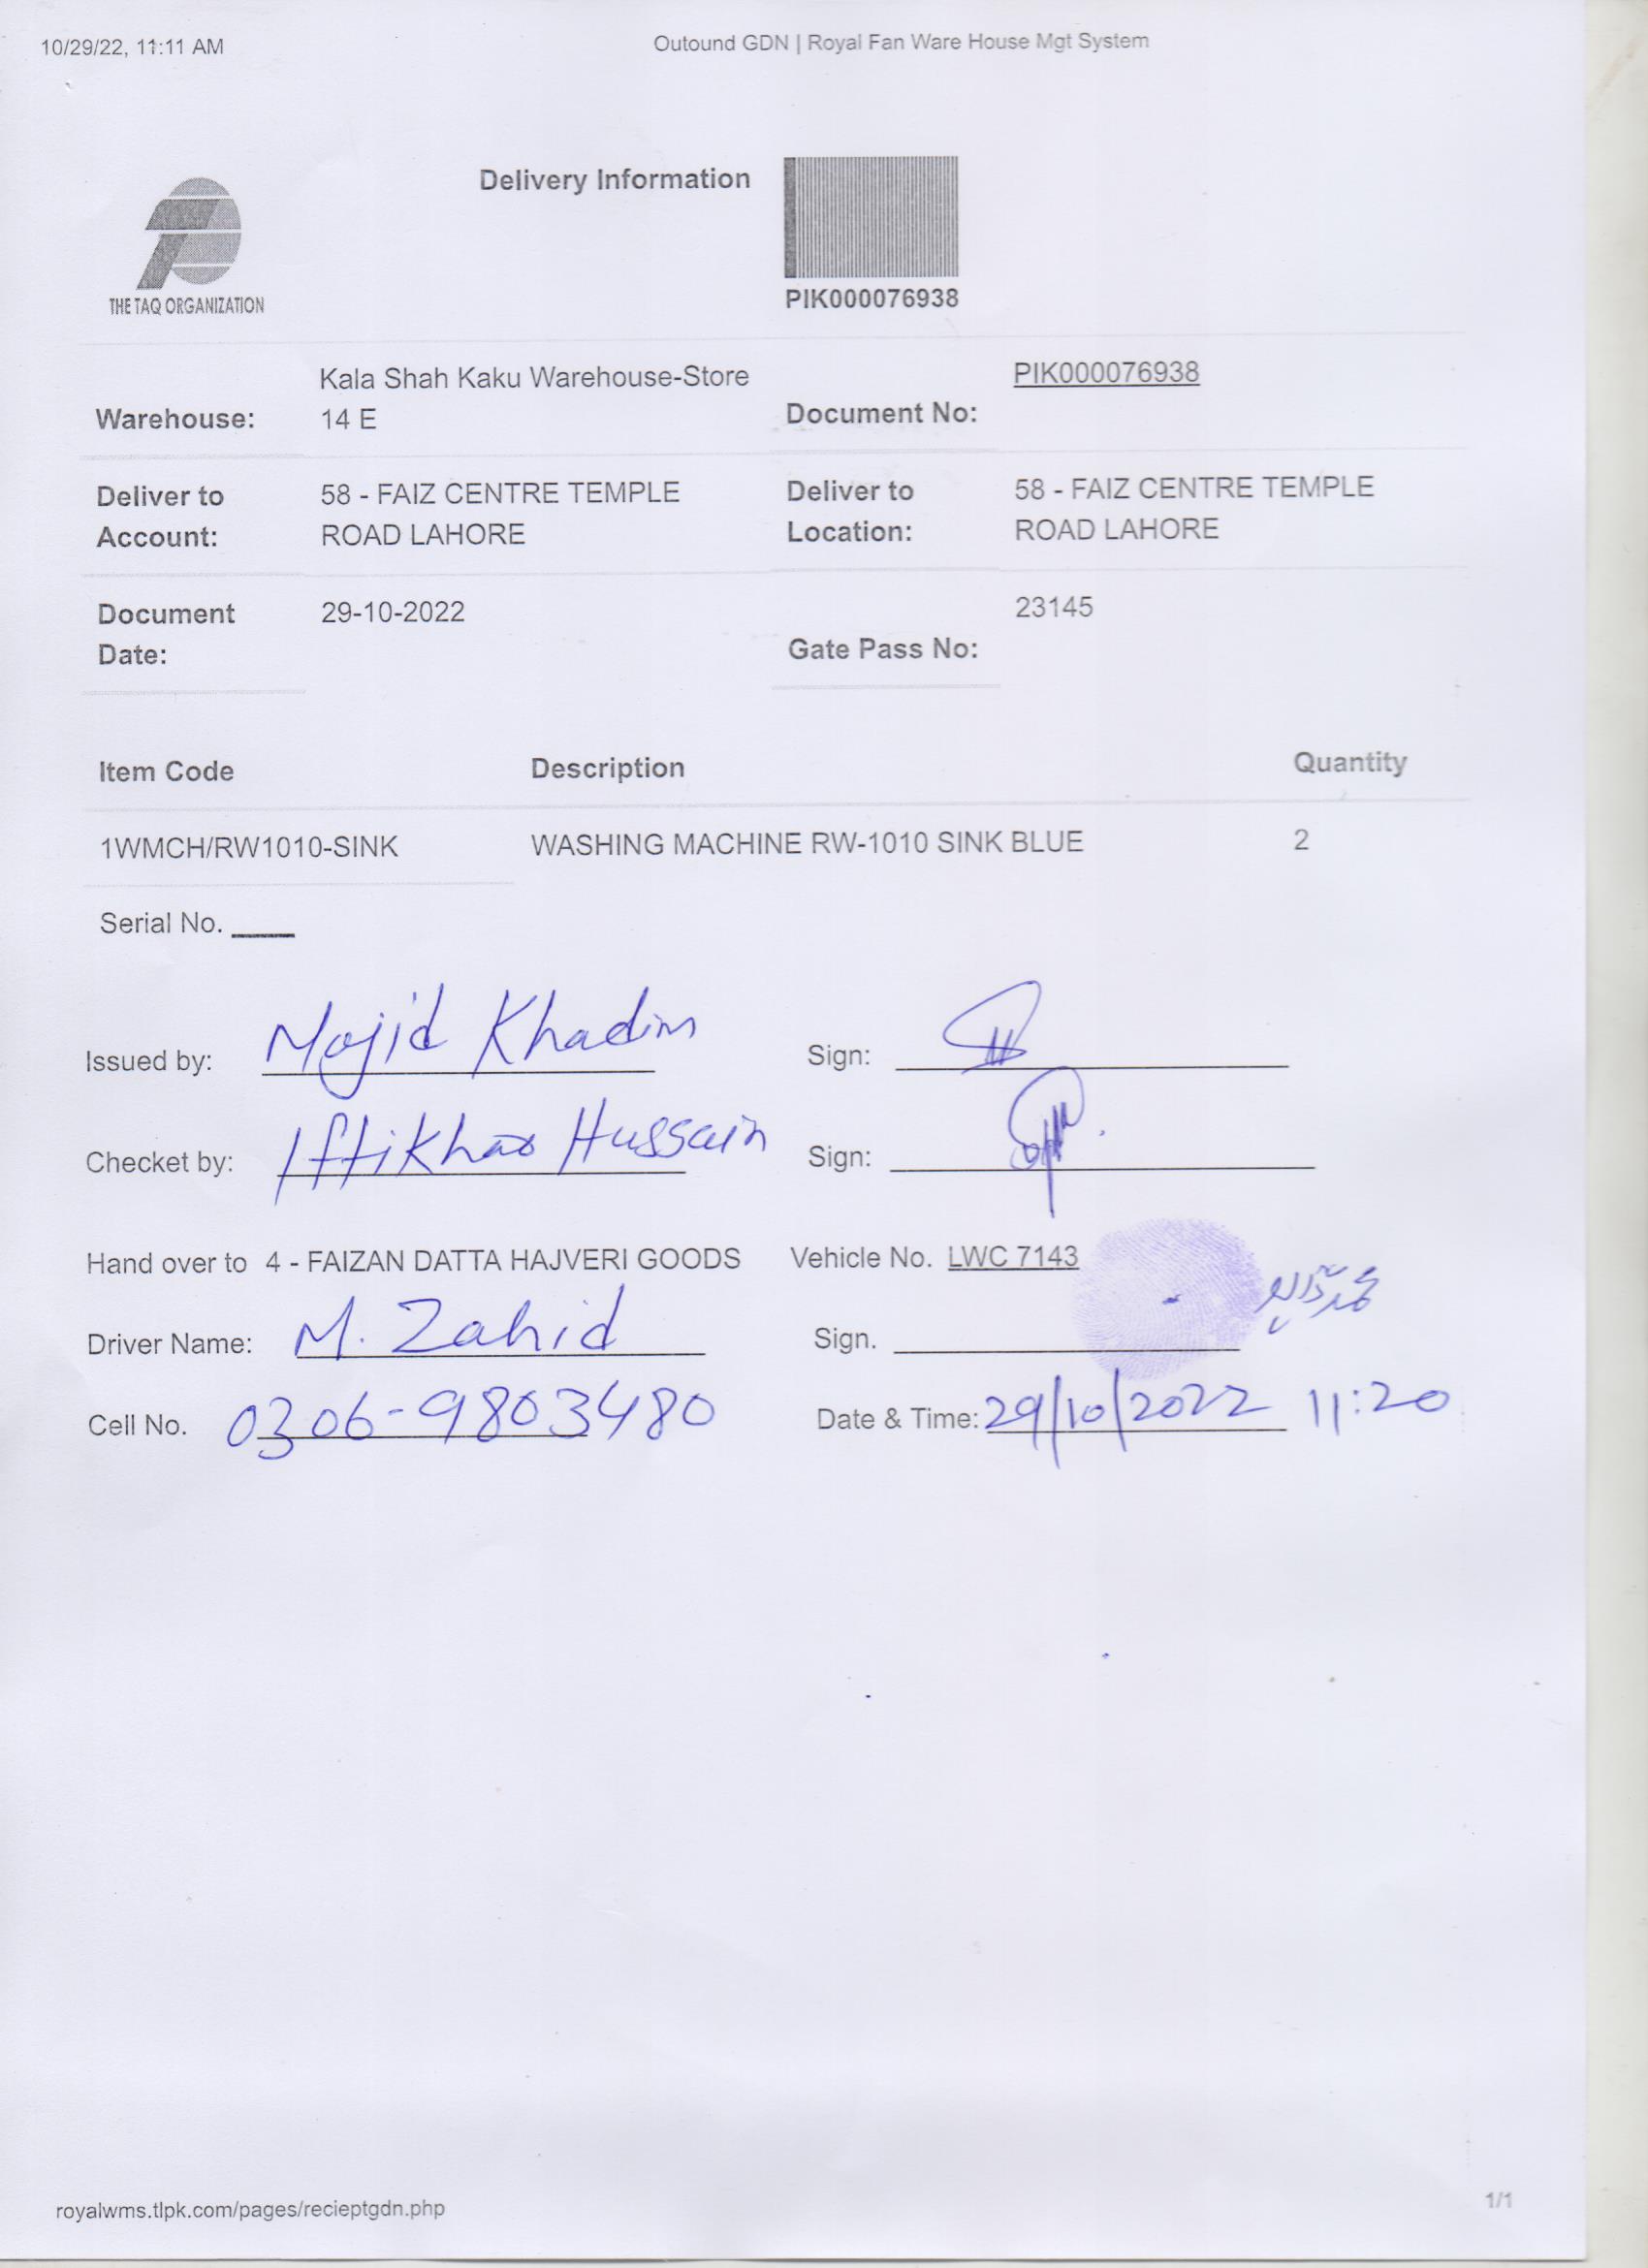 10/29/22, 11:11 AM
Outound GDN | Royal Fan Ware House Mgt System
Delivery Information
THE TAQ ORGANIZATION
PIK000076938
Warehouse: Kala Shah Kaku Warehouse-Store 14 E
Document No: PIK000076938
Deliver to Account: 58 - FAIZ CENTRE TEMPLE ROAD LAHORE
Deliver to Location: 58 - FAIZ CENTRE TEMPLE ROAD LAHORE
Document Date: 29-10-2022
Gate Pass No: 23145
Item Code Description Quantity
1WMCH/RW1010-SINK WASHING MACHINE RW-1010 SINK BLUE 2
Serial No. ____
Issued by: Majid Khadim Sign:
Checket by: Iftikhar Hussain Sign:
Hand over to 4 - FAIZAN DATTA HAJVERI GOODS Vehicle No. LWC 7143
Driver Name: M. Zahid Sign.
Cell No. 0306-9803480 Date & Time: 29/10/2022 11:20
royalwms.tlpk.com/pages/recieptgdn.php
1/1